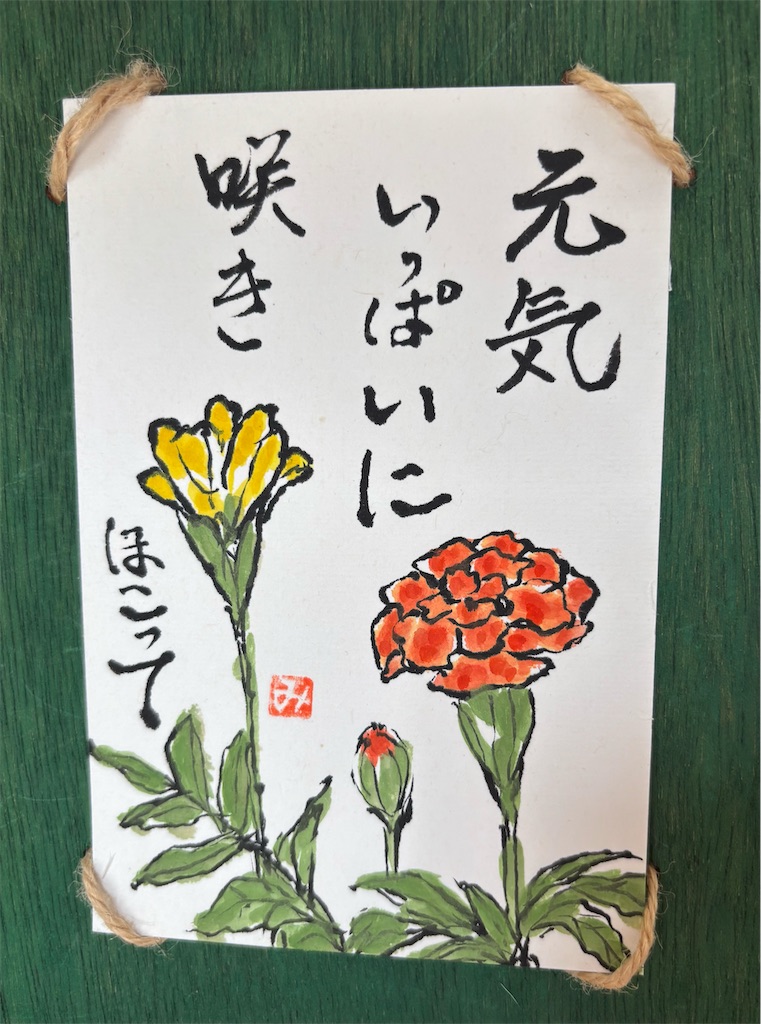 元気
いっぱいに
咲き
ほこって
み